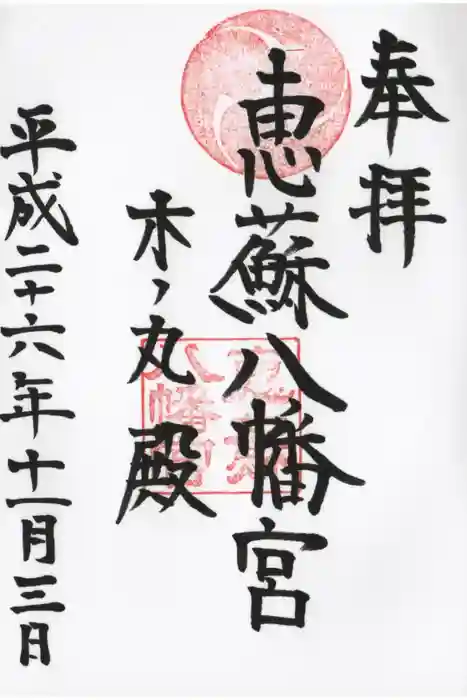 奉拝
恵蘇八幡宮
木ノ丸殿
平成二十六年十一月三日